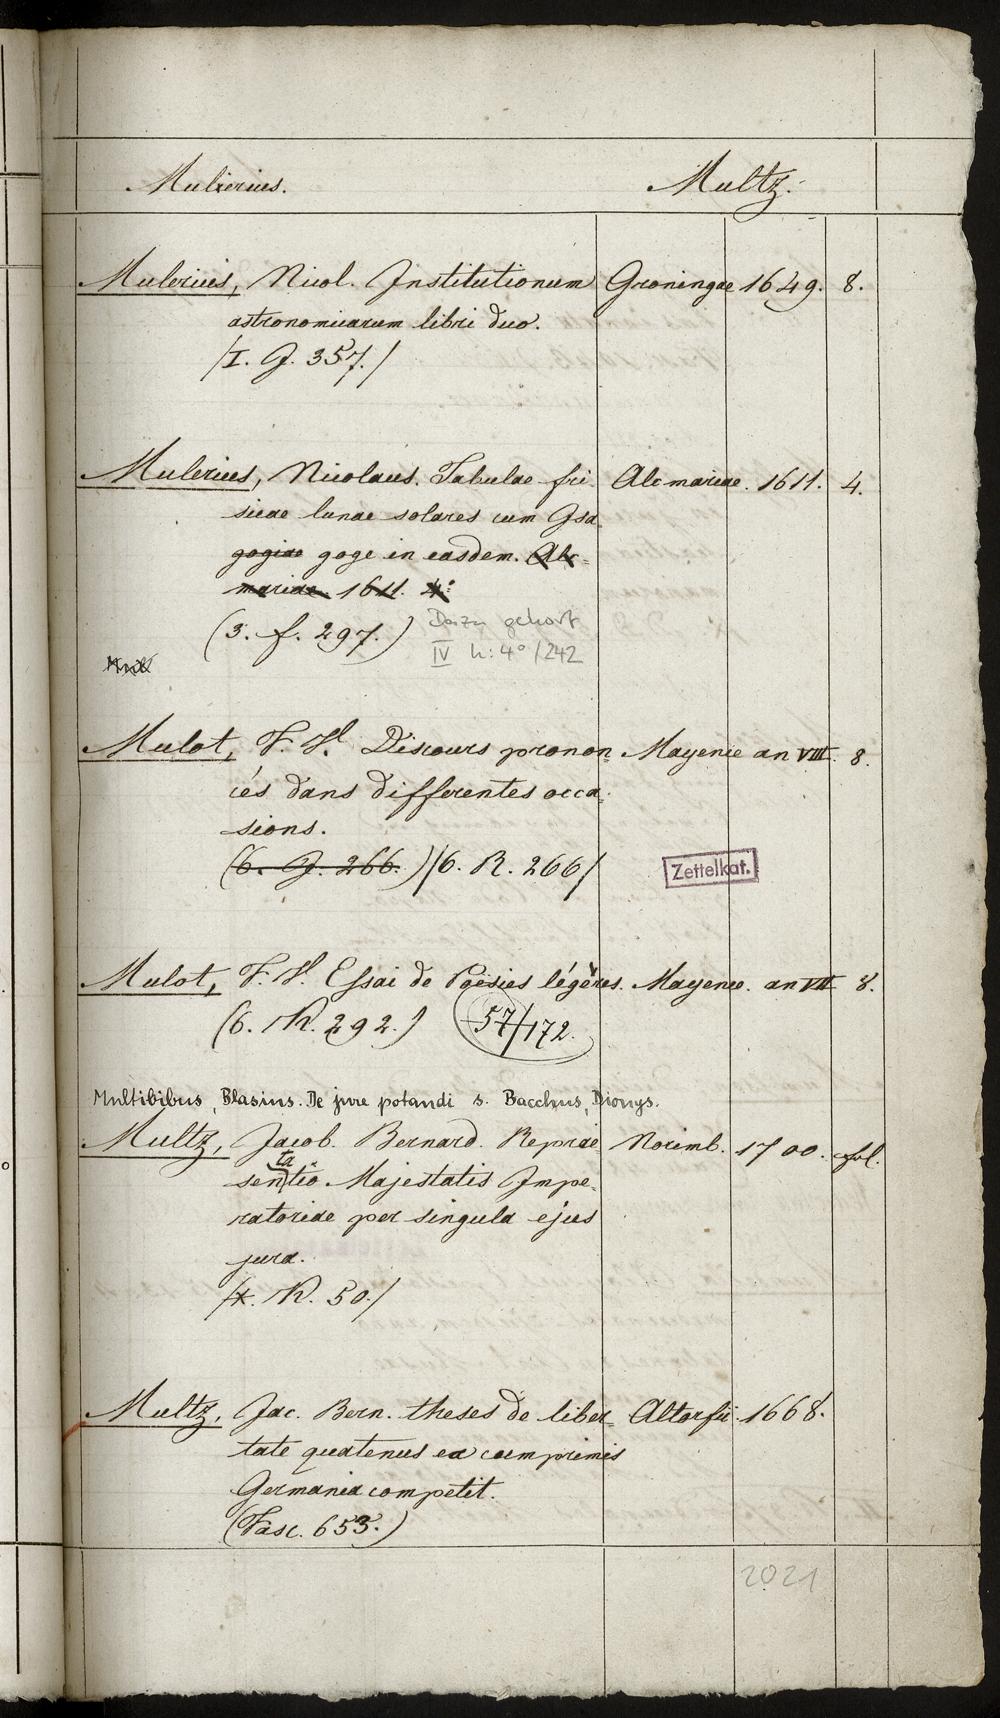 Mulierius. Multz.
Mulerius, Nicol. Institutionum Groningae 1649. 8.
astronomicarum libri duo.
/I. J. 357./
Mulerius, Nicolaus. Tabulae fri- Alcmariae. 1611. 4.
sicae lunae solares cum Isa
gogiae goge in easdem. Alc-
mariae. 1611. 4°
(3. f. 297.) Dazu gehört
IV h: 4° /242
Mulot, F. V. Discours pronon- Mayence an VIII. 8.
cés dans differentes occa-
sions.
(6. J. 266.) /6. R. 266/
Zettelkat.
Mulot, F. V. Essai de Poësies légères. Mayence. an VII 8.
(6. R. 292.) 57/172.
Multibibus, Blasius. De jure potandi s. Bacchus, Dionys.
Multz, Jacob. Bernard. Reprae Norimb. 1700. fol.
sentatio Majestatis Impe-
ratoriae per singula ejus
jura.
/X. R. 50./
Multz, Jac. Bern. theses de liber- Altorfii. 1668.
tate quatenus ea cumprimis
Germania competit.
(Fasc. 653.)
2021